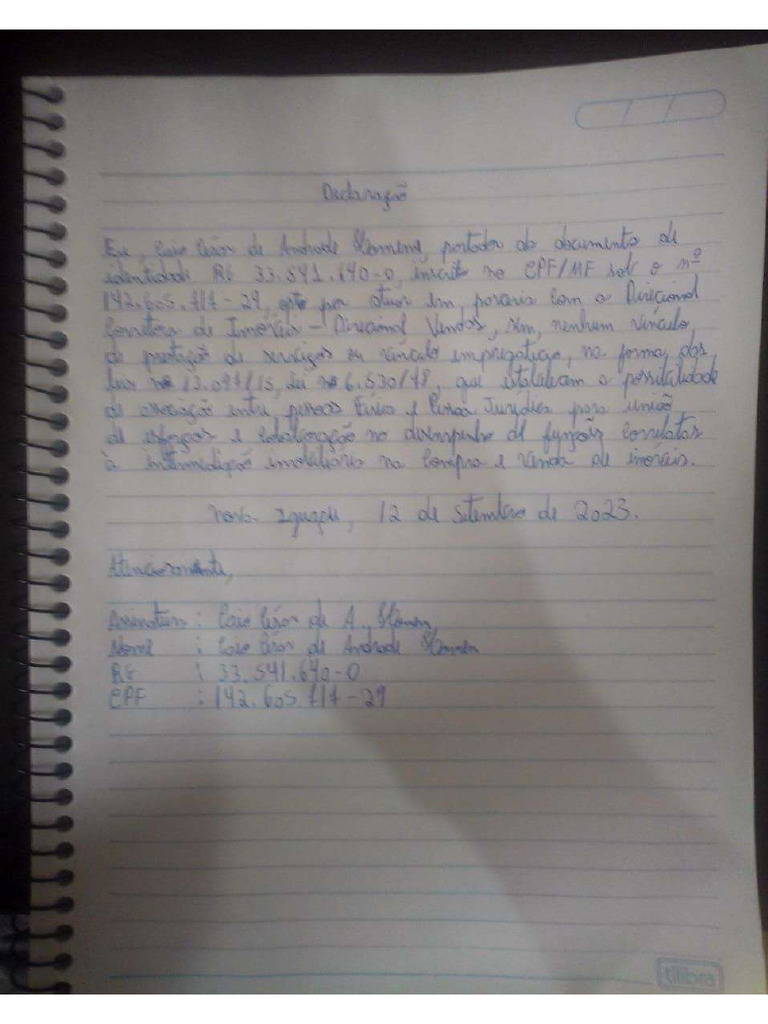 Declaração
Eu, Caio César de Andrade, portador do documento de
identidade RG 33.541.640-0, inscrito no CPF/MF sob o nº
142.605.717-29, opto por atuar em, parceria com a Direcional
Corretora de Imóveis - Direcional Vendas, sem, nenhum vínculo
de prestação de serviços ou vínculo empregatício, na forma, das
leis nº 13.097/15, Lei nº 6.530/78, que estabelecem a possibilidade
de associação entre pessoas Física e Pessoa Jurídica para união
de esforços e colaboração no desempenho de funções correlatas
à intermediação imobiliária na compra e venda de imóveis.
Nova Iguaçu, 12 de Setembro de 2023.
Atenciosamente,
Assinatura : Caio César de A.
Nome : Caio César de Andrade
RG : 33.541.640-0
CPF : 142.605.717-29
tilibra